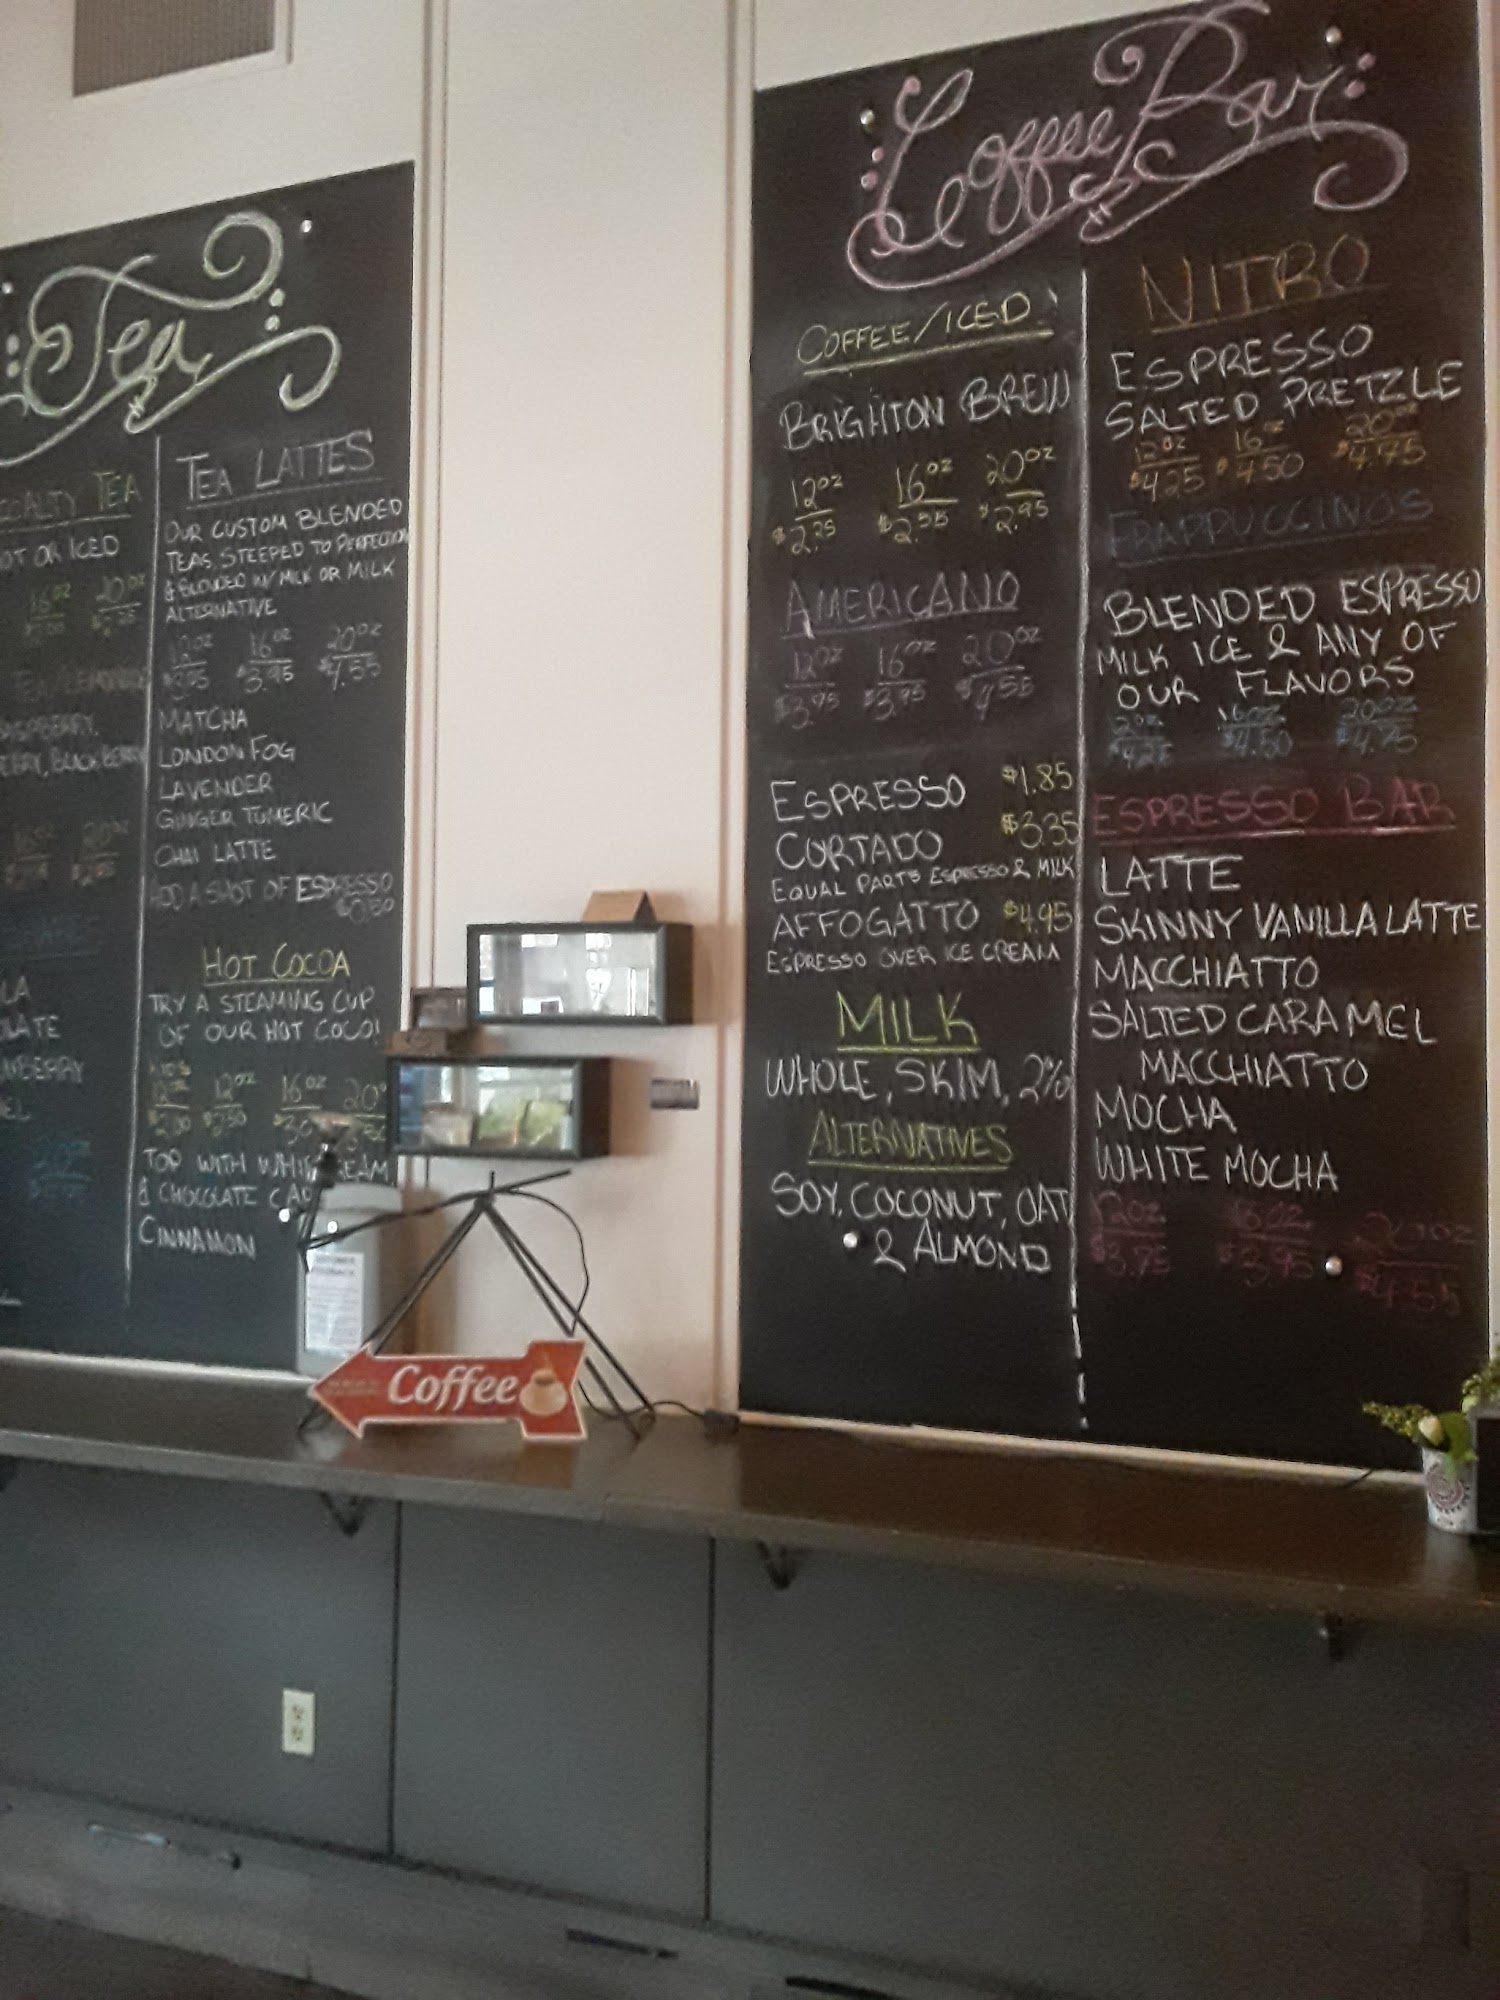 Tea
TEA
OR ICED
16oz 20oz
RASPBERRY,
BLACKBERRY
TEA LATTES
OUR CUSTOM BLENDED
TEAS, STEEPED TO PERFECTION
& BLENDED W/ MILK OR MILK
ALTERNATIVE
12oz 16oz 20oz
$3.95 $4.55
MATCHA
LONDON FOG
LAVENDER
GINGER TUMERIC
CHAI LATTE
ADD A SHOT OF ESPRESSO
$0.50
HOT COCOA
TRY A STEAMING CUP
OF OUR HOT COCO!
12oz 16oz 20
TOP WITH
& CHOCOLATE
CINNAMON
Coffee
Coffee Bar
COFFEE/ICED
BRIGHTON BREW
12oz 16oz 20oz
$2.25 $2.55 $2.95
AMERICANO
12oz 16oz 20oz
$3.75 $3.95 $4.55
ESPRESSO $1.85
CORTADO $3.35
EQUAL PARTS ESPRESSO & MILK
AFFOGATTO $4.95
ESPRESSO OVER ICE CREAM
MILK
WHOLE, SKIM, 2%
ALTERNATIVES
SOY, COCONUT, OAT
& ALMOND
NITRO
ESPRESSO
SALTED PRETZLE
12oz 16oz 20oz
$4.25 $4.50 $4.75
FRAPPUCCINO'S
BLENDED ESPRESSO
MILK ICE & ANY OF
OUR FLAVORS
12oz 16oz 20oz
$4.25 $4.50 $4.75
ESPRESSO BAR
LATTE
SKINNY VANILLA LATTE
MACCHIATTO
SALTED CARAMEL
MACCHIATTO
MOCHA
WHITE MOCHA
12oz 16oz 20oz
$3.75 $3.95 $4.55